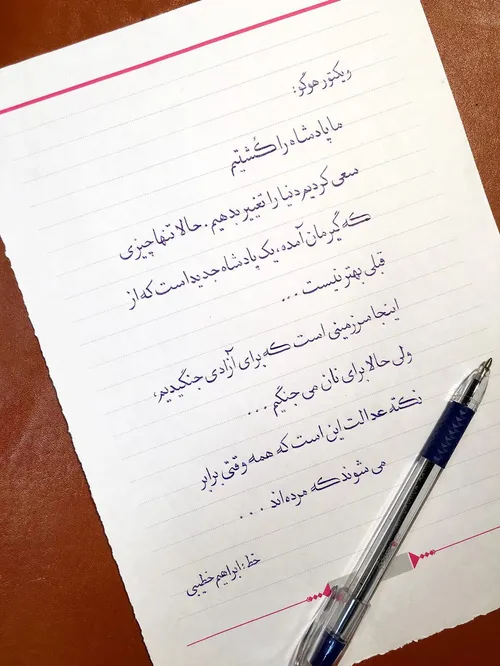 ویکتور هوگو:
ما پادشاه را کُشتیم
سعی کردیم دنیا را تغییر بدهیم. حالا تنها چیزی
که گیرمان آمده، یک پادشاه جدید است که از
قبلی بهتر نیست ...
اینجا سرزمینی است که برای آزادی جنگیدیم،
ولی حالا برای نان می جنگیم ...
نکته عدالت این است که همه وقتی برابر
می شوند که مرده اند ...
خط: ابراهیم خطیبی